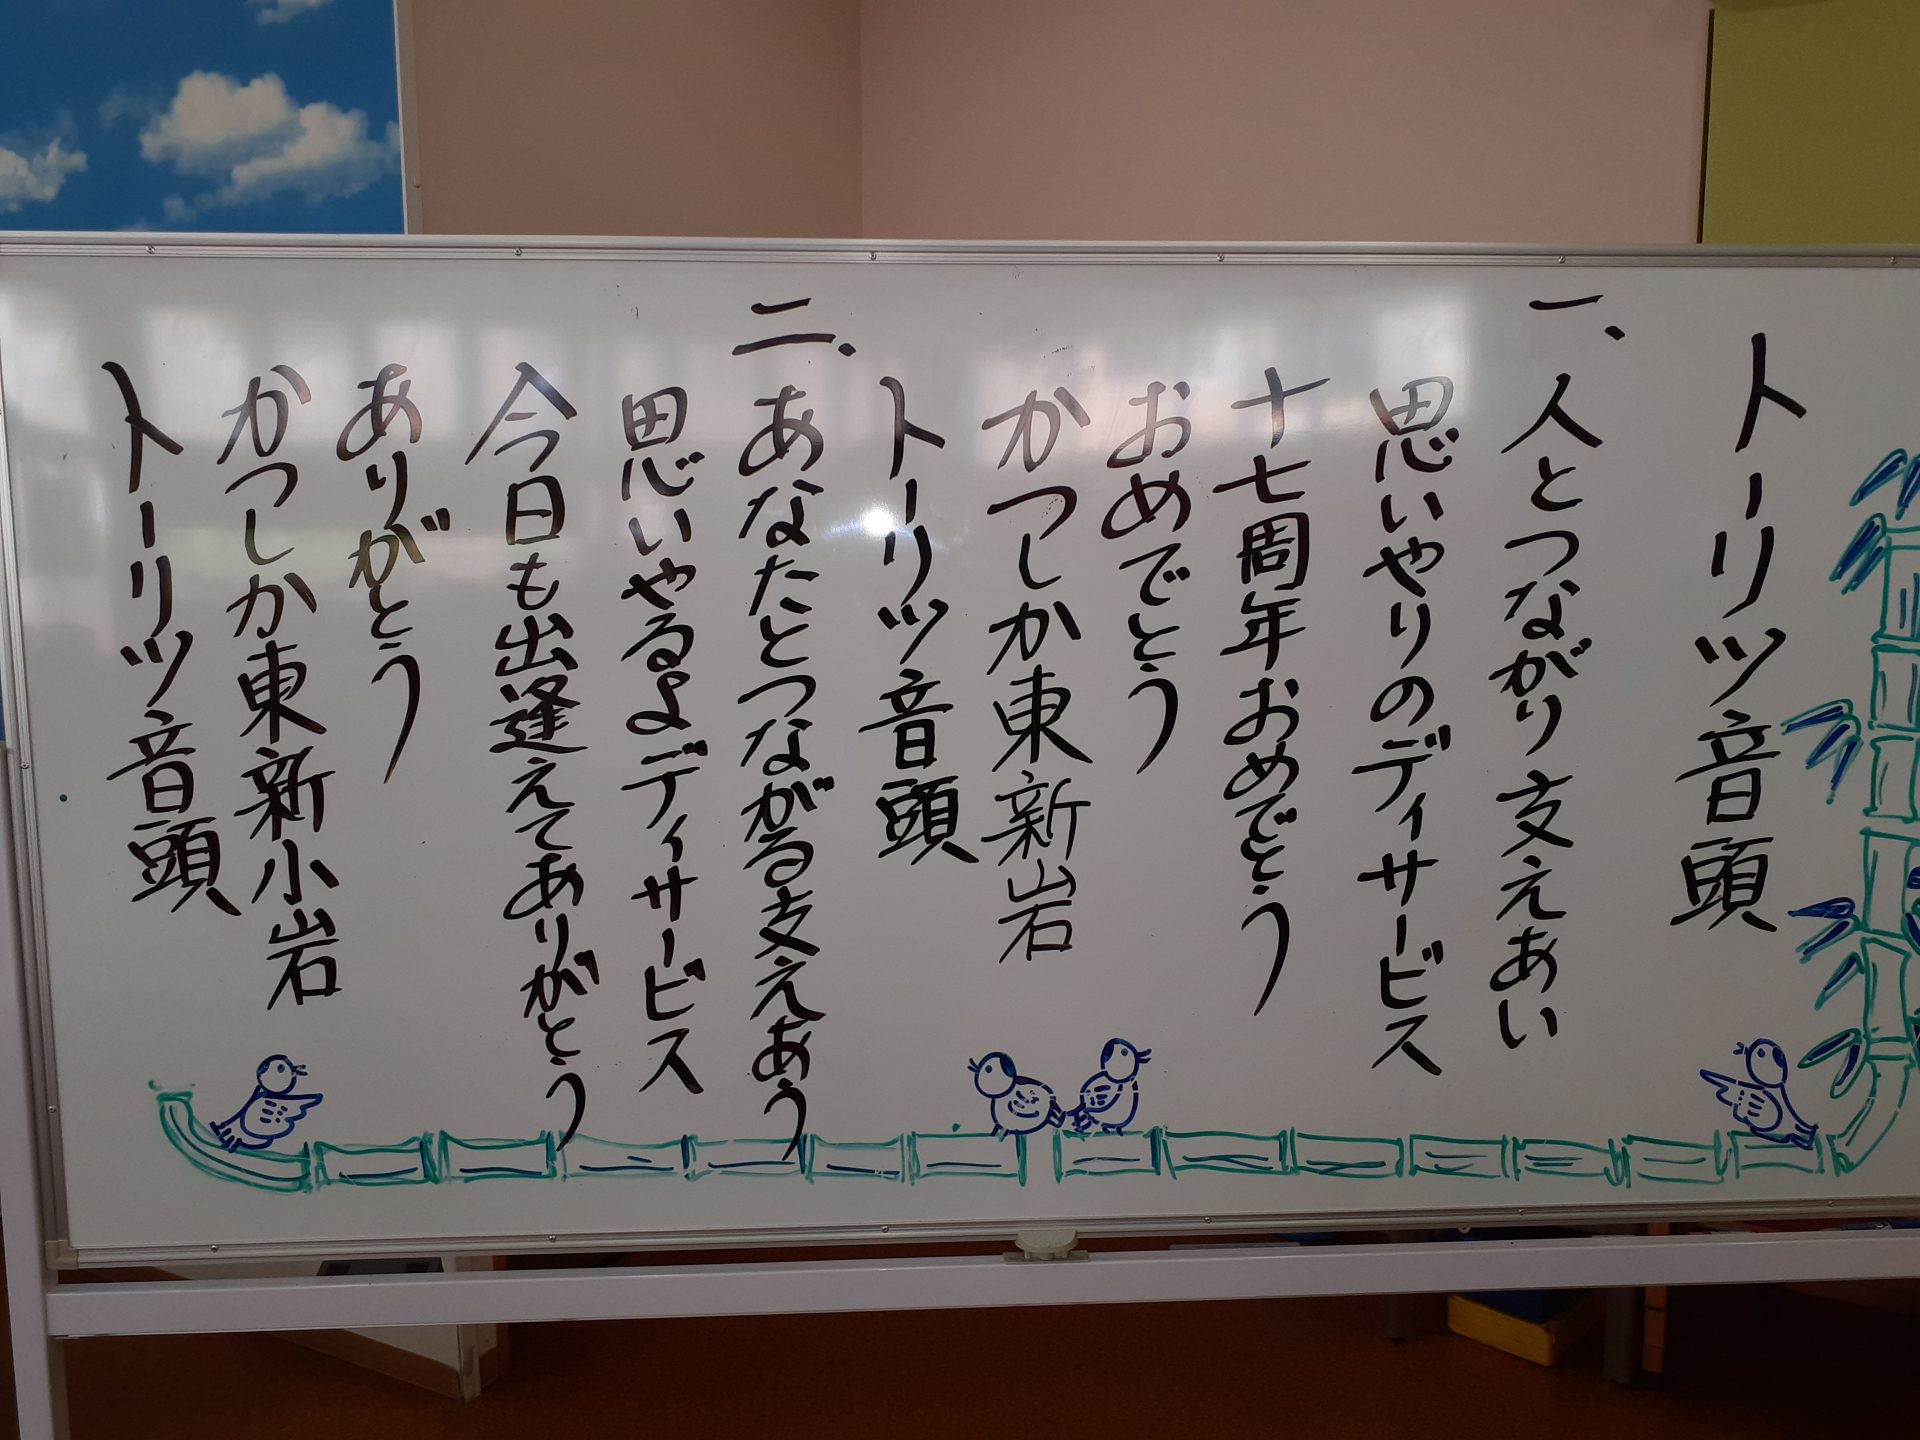 トーリツ音頭
一、人とつながり支えあい
思いやりのディサービス
十七周年おめでとう
おめでとう
かつしか東新岩
トーリツ音頭
二、あなたとつながる支えあう
思いやるよディサービス
今日も出逢えてありがとう
ありがとう
かつしか東新小岩
トーリツ音頭